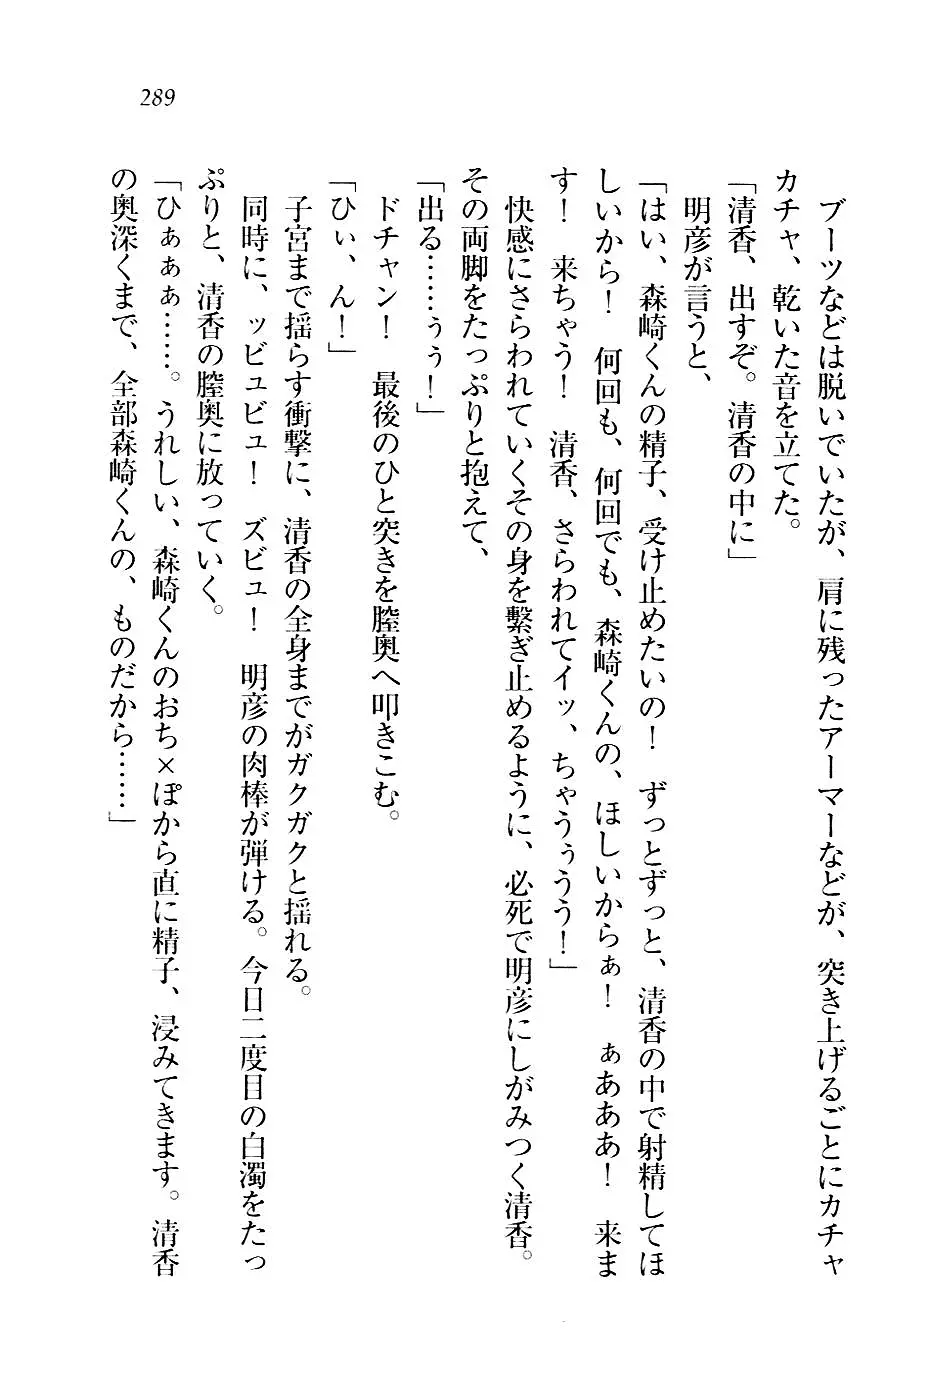 289
ブーツなどは脱いでいたが、肩に残ったアーマーなどが、突き上げるごとにカチャ
カチャ、乾いた音を立てた。
「清香、出すぞ。清香の中に」
明彦が言うと、
「はい、森崎くんの精子、受け止めたいの！　ずっとずっと、清香の中で射精してほ
しいから！　何回も、何回でも、森崎くんの、ほしいからぁ！　ぁあああ！　来ま
す！　来ちゃう！　清香、さらわれてイッ、ちゃうぅうう！」
快感にさらわれていくその身を繋ぎ止めるように、必死で明彦にしがみつく清香。
その両脚をたっぷりと抱えて、
「出る……ぅぅ！」
ドチャン！　最後のひと突きを膣奥へ叩きこむ。
「ひぃ、ん！」
子宮まで揺らす衝撃に、清香の全身までがガクガクと揺れる。
同時に、ッビュビュ！　ズビュ！　明彦の肉棒が弾ける。今日二度目の白濁をたっ
ぷりと、清香の膣奥に放っていく。
「ひぁぁぁ……。うれしい、森崎くんのおち×ぽから直に精子、浸みてきます。清香
の奥深くまで、全部森崎くんの、ものだから……」